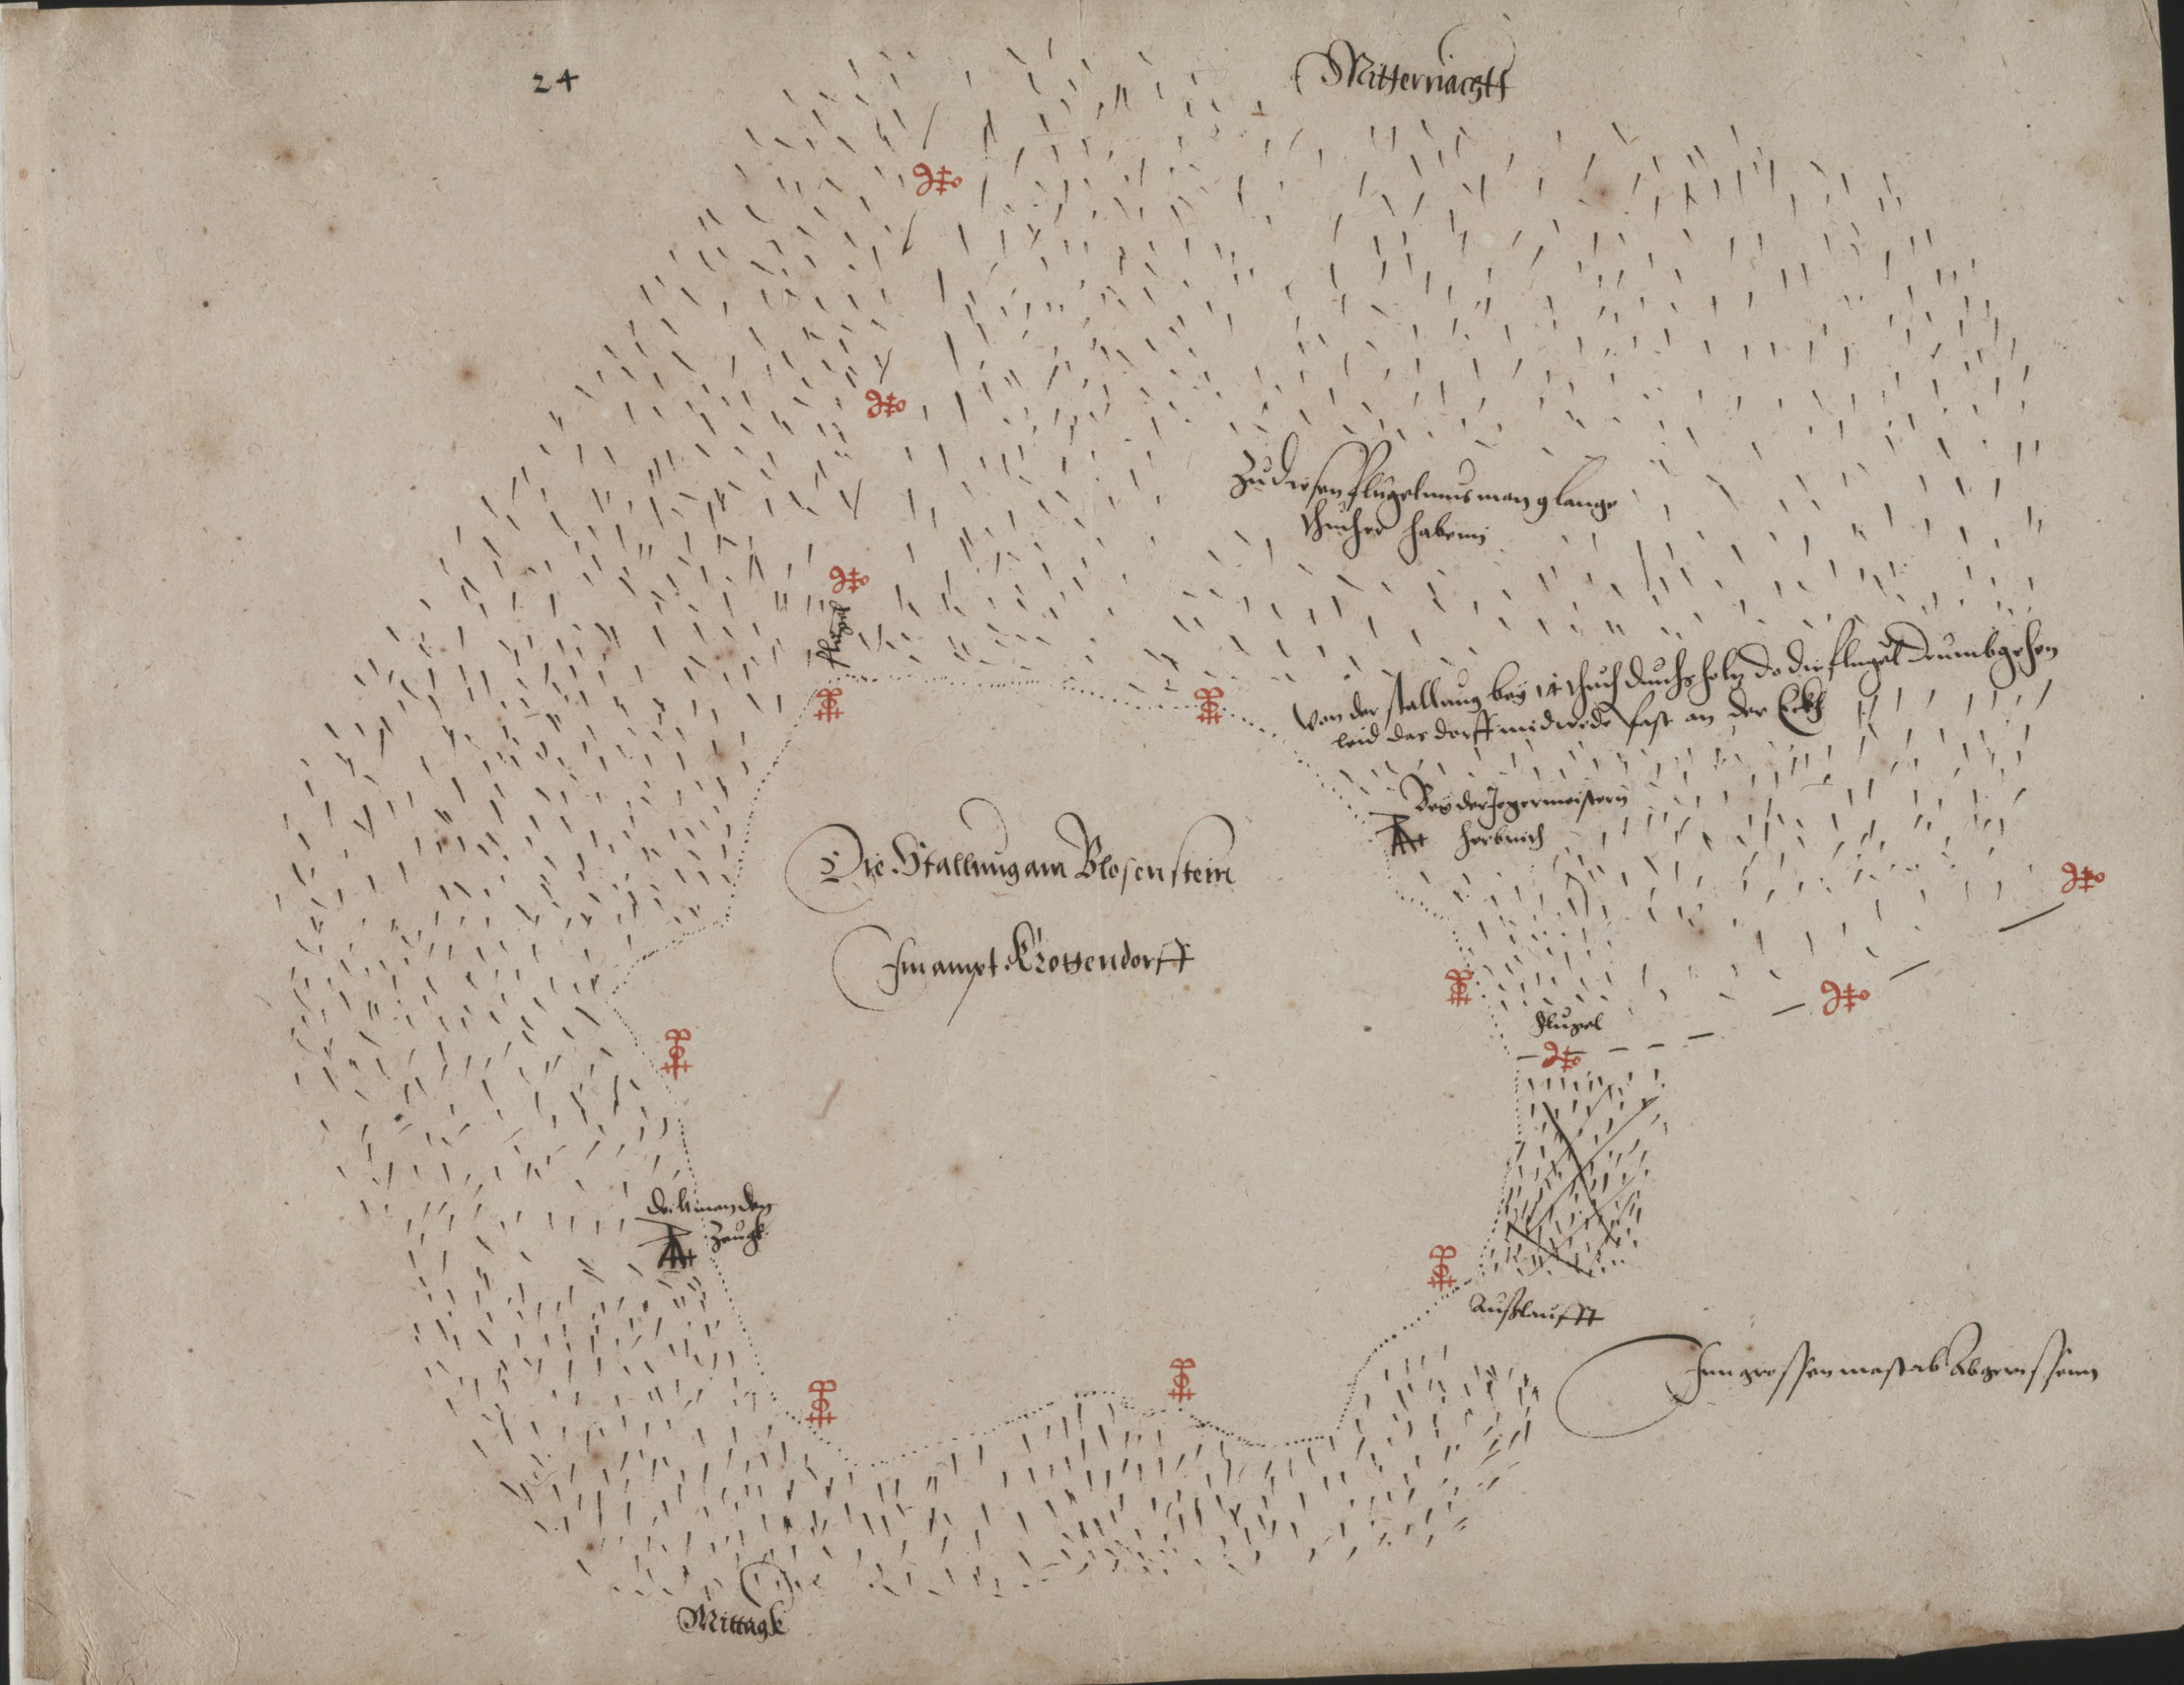 24
Mitternacht
Zu diesen flugel mus man 9 lange
thucher habenn
flugel
Von der stallung bey 14 thuch durchs holz do die flugel drumb gehen
leid das dorff midwede fast an der Eckh
Bey der Jegermeisterin
Die Stallung am Blosenstein
Im ampt Krottendorff
flugel
man den
Zeugk
Außlaufft
Inn grossen mastab Abgerissenn
Mittagk